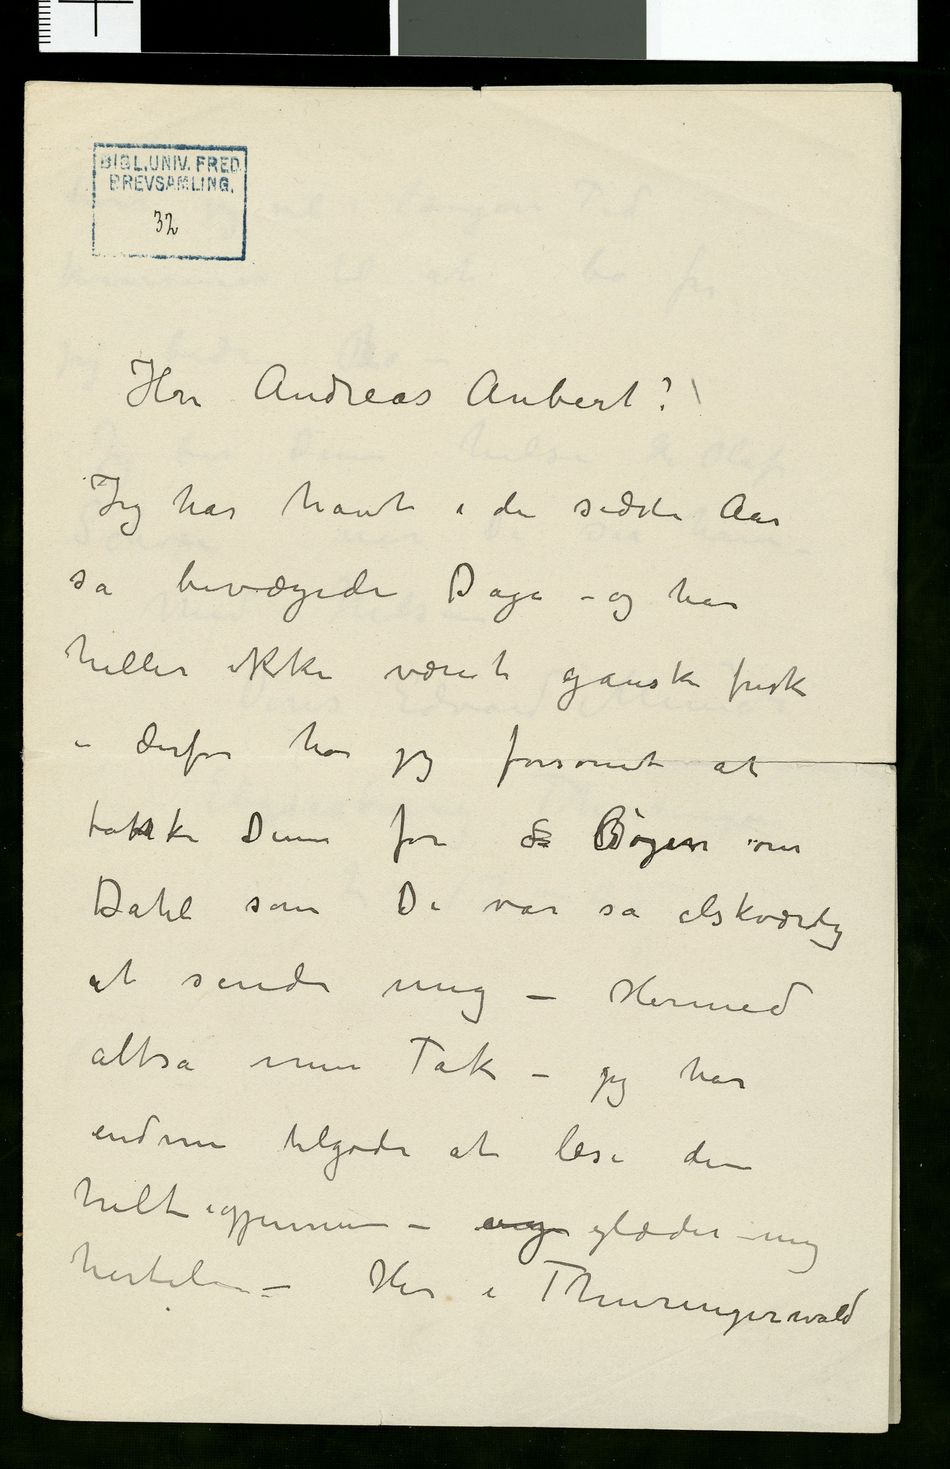 BIBL. UNIV. FRED.
BREVSAMLING.
32
Herr Andreas Aubert!
Jeg har havt i de sidste Aar
så bevægede Dage – og har
heller ikke været ganske frisk
– derfor har jeg forsømt at
takke Dem for Bogen om
Dahl som De var så elskværdig
at sende mig – Hermed
altså min Tak – jeg har
endnu tilgode at læse den
helt igjennem – glæder mig
hertil – Her i Thuringerwald